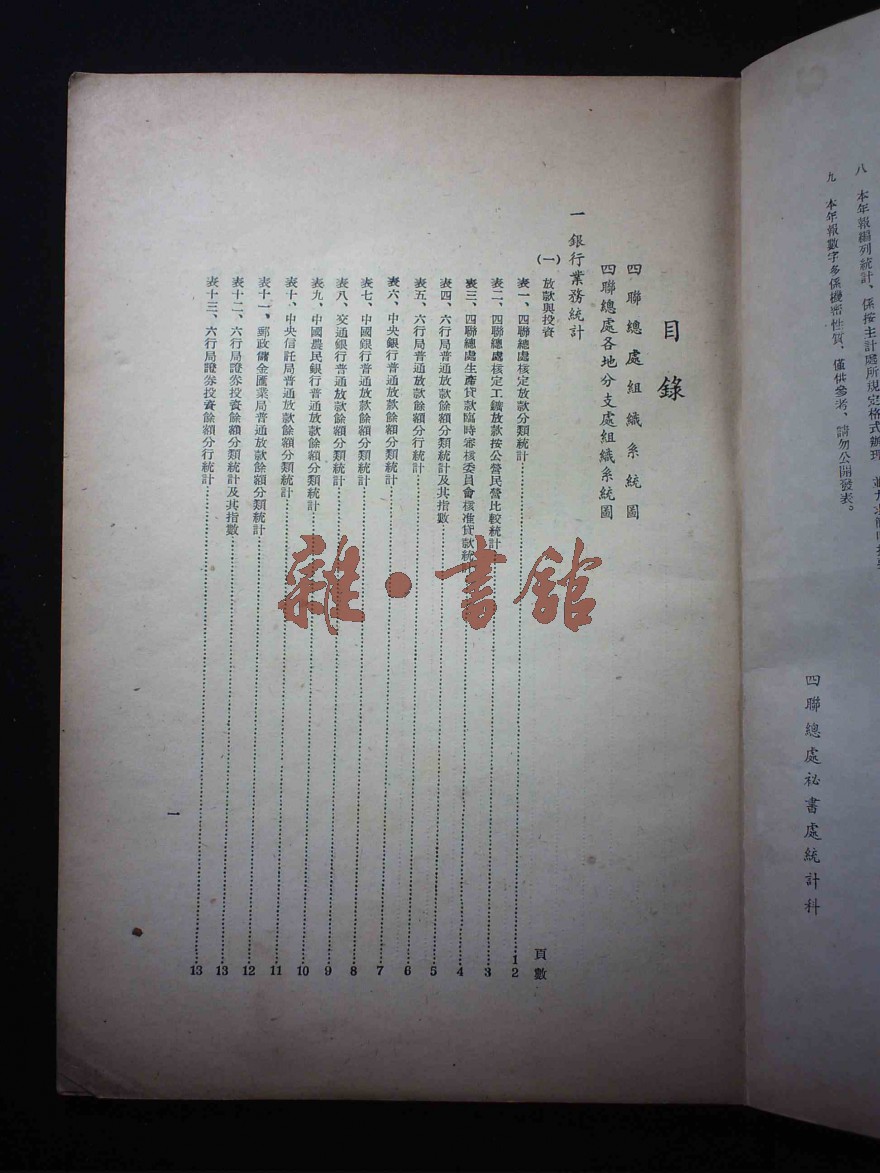 八　本年報編列統計、係按主計處所規定格式辦理
九　本年報數字多係機密性質、僅供參考、請勿公開發表。
四聯總處祕書處統計科
目錄
四聯總處組織系統圖
四聯總處各地分支處組織系統圖
一　銀行業務統計
(一)　放款與投資
頁數
表一、四聯總處核定放款分類統計…………1 2
表二、四聯總處核定工鑛放款按公營民營比較統計…………3
表三、四聯總處生產貸款臨時審核委員會核准貸款統…………4
表四、六行局普通放款餘額分類統計及其指數…………5
表五、六行局普通放款餘額分行統計…………6
表六、中央銀行普通放款餘額分類統計…………7
表七、中國銀行普通放款餘額分類統計…………8
表八、交通銀行普通放款餘額分類統計…………9
表九、中國農民銀行普通放款餘額分類統計…………10
表十、中央信託局普通放款餘額分類統計…………11
表十一、郵政儲金匯業局普通放款餘額分類統計…………12
表十二、六行局證券投資餘額分類統計及其指數…………13
表十三、六行局證券投資餘額分行統計…………13
一
雜·書館